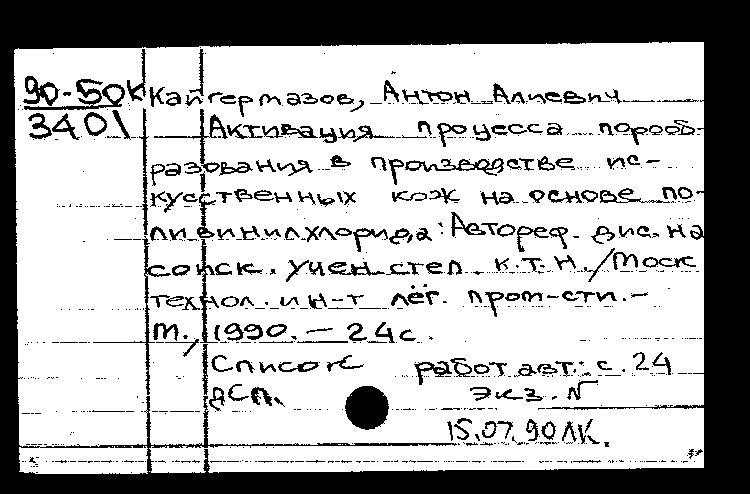 90-50к Кайгермазов, Антон Алиевич
3401 Активация процесса порооб-
разования в производстве ис-
кусственных кож на основе по-
ливинилхлорида: Автореф. дис. на
соиск. учен. степ. к.т.н. / Моск
технол. ин-т лёг. пром-сти. -
М., 1990. - 24 с.
Список работ авт.: с. 24
ДСП. экз. №
15.07.90 ЛК.